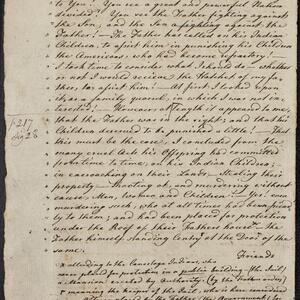 to You! You see a great and powerful Nation
divided! You see the Father fighting against
the Son, and the Son fighting against the
Father! – The Father has called on his Indian
Children, to assist him in punishing his Children
the Americans, who had become refractory!
I took time to consider what I should do – whether
or not I would receive the Hatchet of my fa-
ther, to assist him! – At first I looked upon
it as a family quarrel, in which I was not in-
terested – However at length it appeared to me,
that the Father was in the right; and that his
Children deserved to be punished a little! – That
this must be the case, I concluded from the
many cruel Acts his Offspring had committed
from time to time, on his Indian Children;
in encroaching on their Lands – Stealing their
property – Shooting at, and murdering without
cause, Men, Women and Children – Yes! even
murdering such, who at all times had been friend-
ly to them, and had been placed for protection
under the Roof of their Fathers house – The
Father himself standing Centry at the Door at the
same
Friends
p. 217
Alluding to the Canestoga Indians, who
were placed for protection in a public building
meaning the